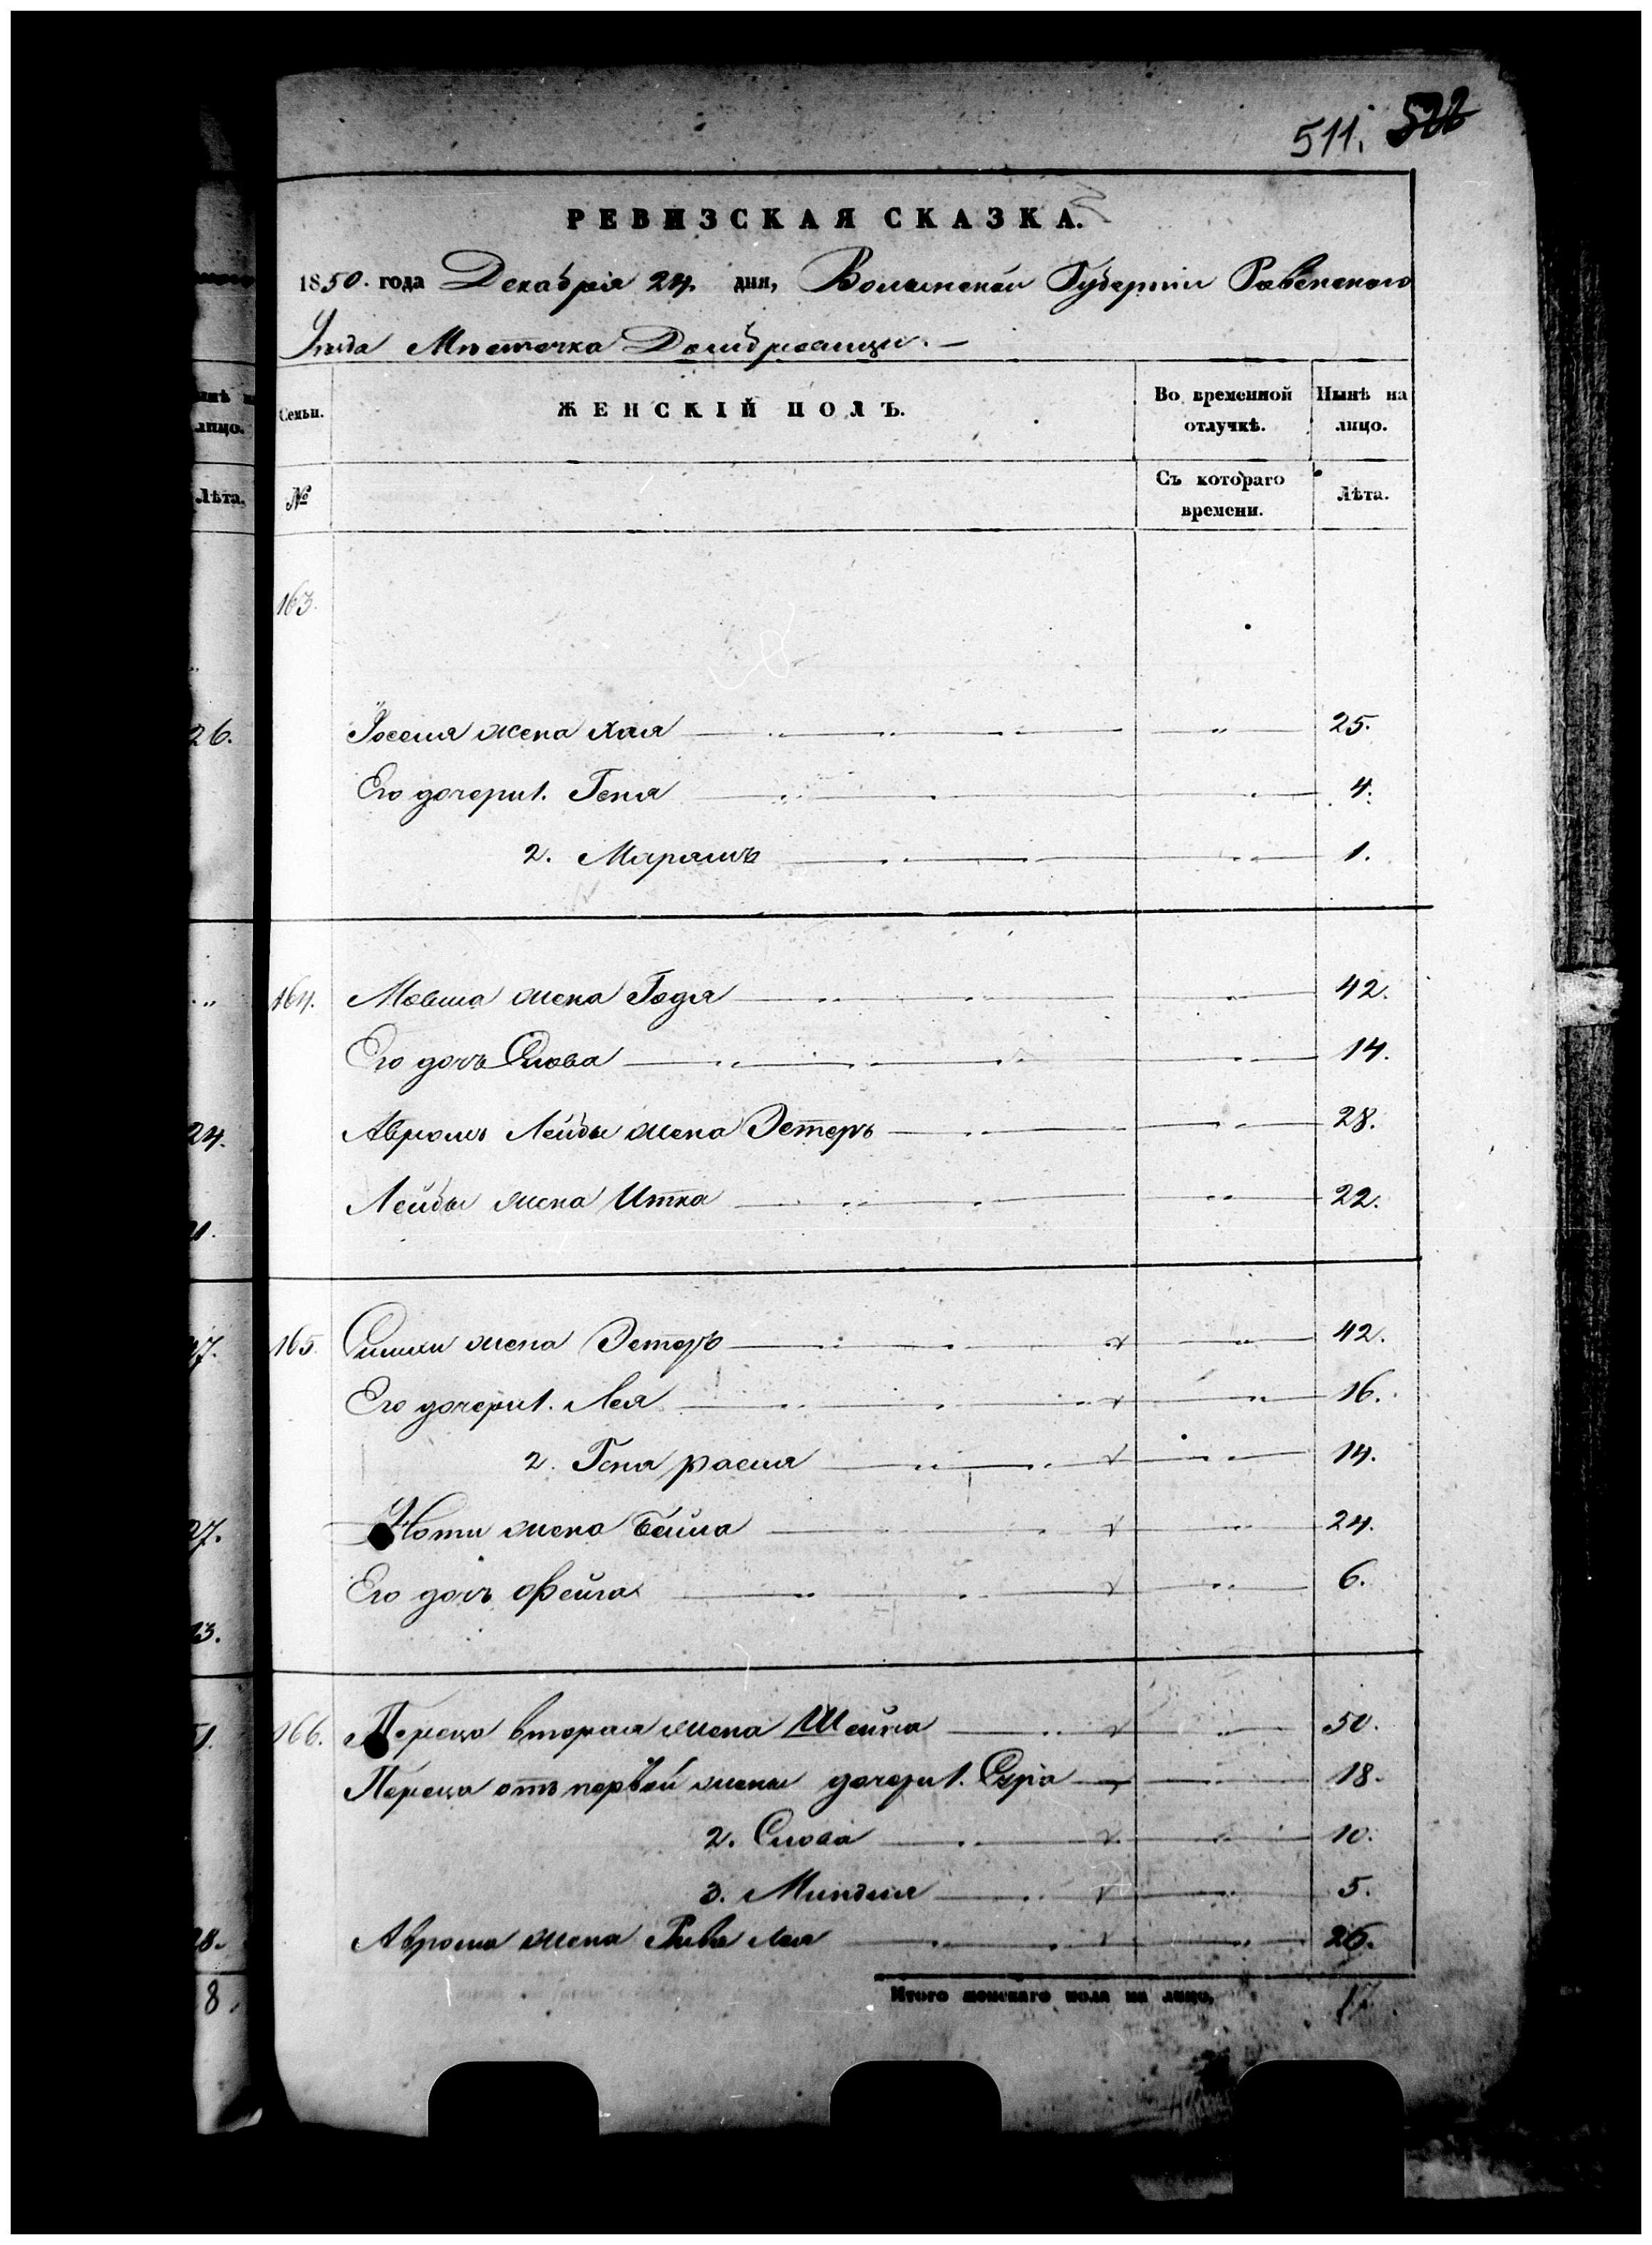 511. 522
РЕВИЗСКАЯ СКАЗКА.
1850. года Декабрія 24. дня, Волынской Губерніи Ровенского
Уѣзда Мѣстечка Домбровицы. —
Семьи.
ЖЕНСКІЙ ПОЛЪ.
Во временной отлучкѣ.
Нынѣ на лицо.
№
Съ котораго времени.
Лѣта.
лицо.
Лѣта.
163.
26. Іоселя жена Хая 25.
Его дочери 1. Геня 4.
2. Марямъ 1.
164. Мовша жена Годя 42.
Его дочь Слова 14.
24. Авромъ Лейбы жена Эстеръ 28.
Лейбы жена Итка 22.
165. Симхи жена Эстеръ 42.
Его дочери 1. Лея 16.
2. Геня рася 14.
27. Ноти жена Бейла 24.
Его дочь Фейга 6.
166. Переца вторая жена Шейна 50.
Переца отъ первой жены дочери 1. Сура 18.
2. Слова 10.
3. Миндля 5.
Аврома жена Рива Лея 26.
8. Итого женскаго пола на лицо, 17